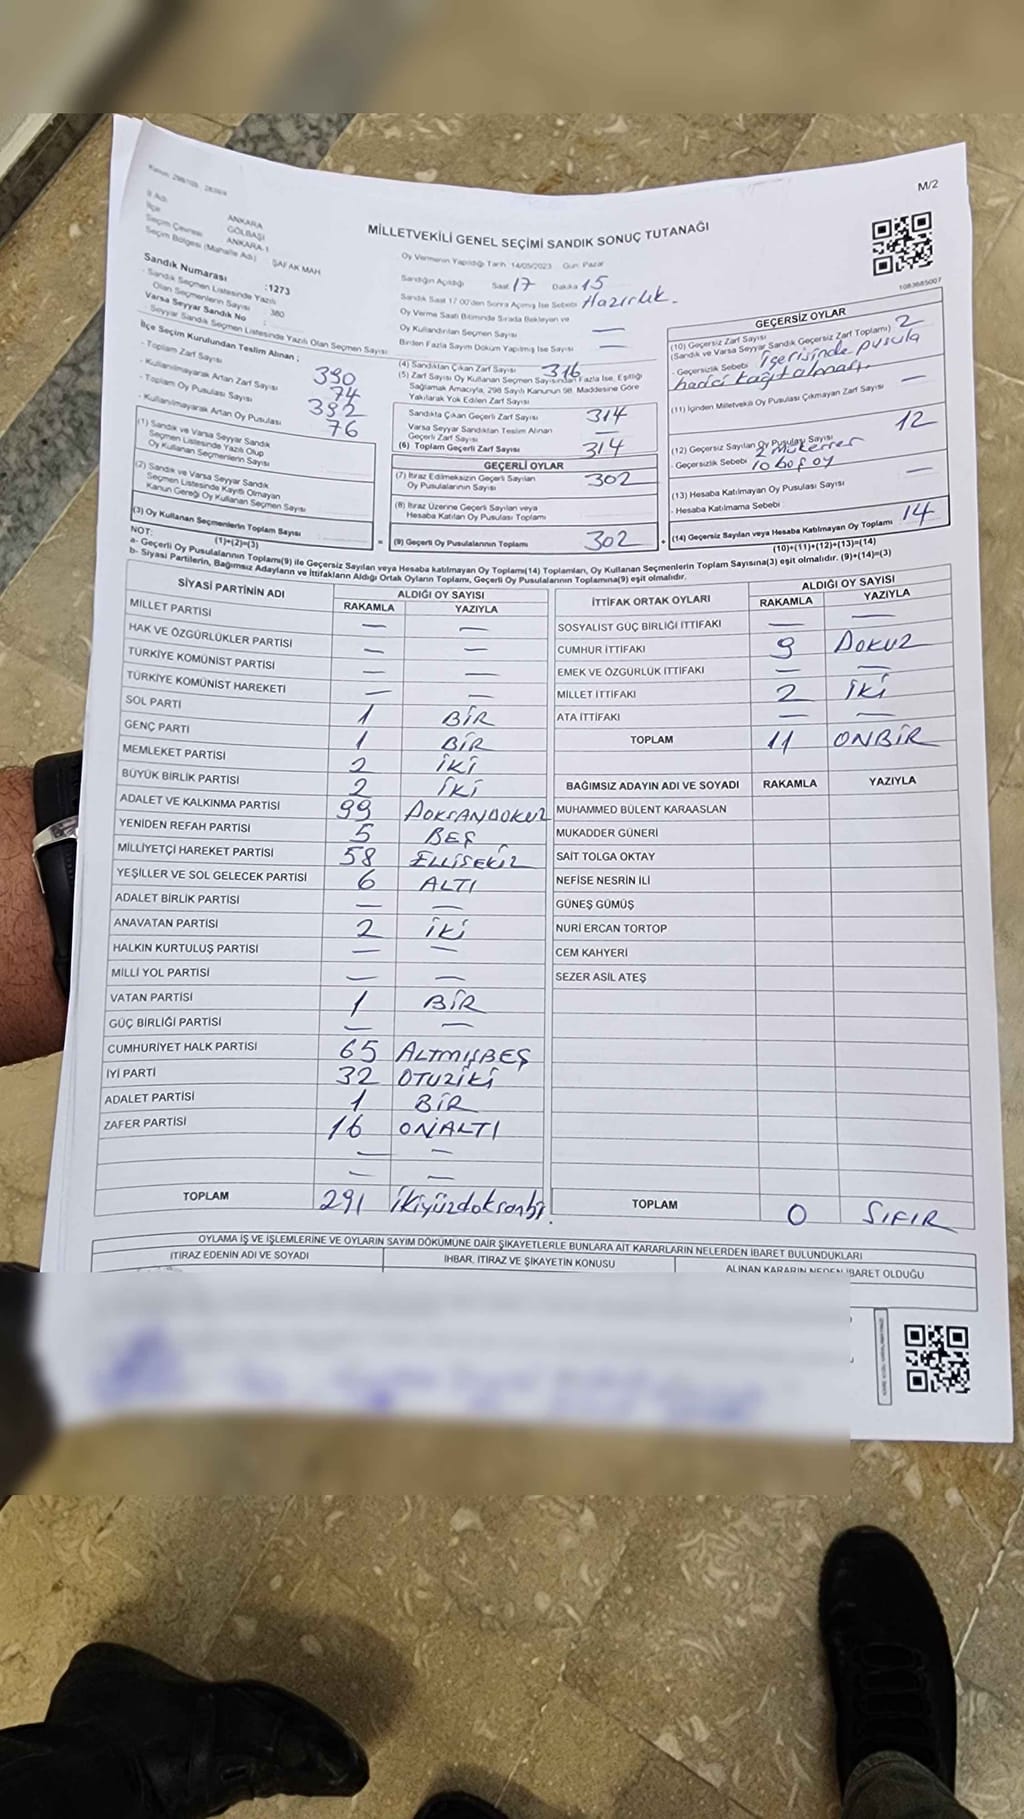 M/2
MİLLETVEKİLİ GENEL SEÇİMİ SANDIK SONUÇ TUTANAĞI
1083685007
İl Adı ANKARA
İlçe GÖLBAŞI
Seçim Çevresi ANKARA-1
Seçim Bölgesi (Mahalle Adı) ŞAFAK MAH
Sandık Numarası :1273
Sandık Seçmen Listesinde Yazılı
Olan Seçmenlerin Sayısı : 380
Varsa Seyyar Sandık No
Seyyar Sandık Seçmen Listesinde Yazılı Olan Seçmen Sayısı
İlçe Seçim Kurulundan Teslim Alınan ;
- Toplam Zarf Sayısı 390
- Kullanılmayarak Artan Zarf Sayısı 74
- Toplam Oy Pusulası Sayısı 392
- Kullanılmayarak Artan Oy Pusulası 76
(1) Sandık ve Varsa Seyyar Sandık
Seçmen Listesinde Yazılı Olup
Oy Kullanan Seçmenlerin Sayısı
(2) Sandık ve Varsa Seyyar Sandık
Seçmen Listesinde Kayıtlı Olmayan
Kanun Gereği Oy Kullanan Seçmen Sayısı
(3) Oy Kullanan Seçmenlerin Toplam Sayısı
(1)+(2)=(3)
Oy Vermenin Yapıldığı Tarih: 14/05/2023 Gün: Pazar
Sandığın Açıldığı Saat 17 Dakika 15
Sandık Saat 17:00'den Sonra Açılmış İse Sebebi Hazırlık.
Oy Verme Saati Bitiminde Sırada Bekleyen ve
Oy Kullandırılan Seçmen Sayısı —
Birden Fazla Sayım Döküm Yapılmış İse Sayısı —
(4) Sandıktan Çıkan Zarf Sayısı 316
(5) Zarf Sayısı Oy Kullanan Seçmen Sayısından Fazla İse, Eşitliği
Sağlamak Amacıyla, 298 Sayılı Kanunun 98. Maddesine Göre
Yakılarak Yok Edilen Zarf Sayısı
Sandıkta Çıkan Geçerli Zarf Sayısı 314
Varsa Seyyar Sandıktan Teslim Alınan
Geçerli Zarf Sayısı
(6) Toplam Geçerli Zarf Sayısı 314
GEÇERLİ OYLAR
(7) İtiraz Edilmeksizin Geçerli Sayılan
Oy Pusulalarının Sayısı 302
(8) İtiraz Üzerine Geçerli Sayılan veya
Hesaba Katılan Oy Pusulası Toplamı
(9) Geçerli Oy Pusulalarının Toplamı 302
GEÇERSİZ OYLAR
(10) Geçersiz Zarf Sayısı
(Sandık ve Varsa Seyyar Sandık Geçersiz Zarf Toplamı) 2
- Geçersizlik Sebebi İçerisinde pusula
harici kağıt olması.
(11) İçinden Milletvekili Oy Pusulası Çıkmayan Zarf Sayısı —
(12) Geçersiz Sayılan Oy Pusulası Sayısı 12
- Geçersizlik Sebebi 2 Mükerrer
10 boş oy
(13) Hesaba Katılmayan Oy Pusulası Sayısı —
- Hesaba Katılmama Sebebi
(14) Geçersiz Sayılan veya Hesaba Katılmayan Oy Toplamı 14
(10)+(11)+(12)+(13)=(14)
NOT:
a- Geçerli Oy Pusulalarının Toplamı(9) ile Geçersiz Sayılan veya Hesaba katılmayan Oy Toplamı(14) Toplamları, Oy Kullanan Seçmenlerin Toplam Sayısına(3) eşit olmalıdır. (9)+(14)=(3)
b- Siyasi Partilerin, Bağımsız Adayların ve İttifakların Aldığı Ortak Oyların Toplamı, Geçerli Oy Pusulalarının Toplamına(9) eşit olmalıdır.
SİYASİ PARTİNİN ADI ALDIĞI OY SAYISI
RAKAMLA YAZIYLA
MİLLET PARTİSİ — —
HAK VE ÖZGÜRLÜKLER PARTİSİ — —
TÜRKİYE KOMÜNİST PARTİSİ — —
TÜRKİYE KOMÜNİST HAREKETİ — —
SOL PARTİ 1 BİR
GENÇ PARTİ 1 BİR
MEMLEKET PARTİSİ 2 İKİ
BÜYÜK BİRLİK PARTİSİ 2 İKİ
ADALET VE KALKINMA PARTİSİ 99 DOKSANDOKUZ
YENİDEN REFAH PARTİSİ 5 BEŞ
MİLLİYETÇİ HAREKET PARTİSİ 58 ELLİSEKİZ
YEŞİLLER VE SOL GELECEK PARTİSİ 6 ALTI
ADALET BİRLİK PARTİSİ — —
ANAVATAN PARTİSİ 2 İKİ
HALKIN KURTULUŞ PARTİSİ — —
MİLLİ YOL PARTİSİ — —
VATAN PARTİSİ 1 BİR
GÜÇ BİRLİĞİ PARTİSİ — —
CUMHURİYET HALK PARTİSİ 65 ALTMIŞBEŞ
İYİ PARTİ 32 OTUZİKİ
ADALET PARTİSİ 1 BİR
ZAFER PARTİSİ 16 ONALTI
— —
— —
TOPLAM 291 İkiyüzdoksanbi.
İTTİFAK ORTAK OYLARI ALDIĞI OY SAYISI
RAKAMLA YAZIYLA
SOSYALİST GÜÇ BİRLİĞİ İTTİFAKI — —
CUMHUR İTTİFAKI 9 DOKUZ
EMEK VE ÖZGÜRLÜK İTTİFAKI — —
MİLLET İTTİFAKI 2 İKİ
ATA İTTİFAKI — —
TOPLAM 11 ONBİR
BAĞIMSIZ ADAYIN ADI VE SOYADI RAKAMLA YAZIYLA
MUHAMMED BÜLENT KARAASLAN
MUKADDER GÜNERİ
SAİT TOLGA OKTAY
NEFİSE NESRİN İLİ
GÜNEŞ GÜMÜŞ
NURİ ERCAN TORTOP
CEM KAHYERİ
SEZER ASİL ATEŞ
TOPLAM 0 SIFIR
OYLAMA İŞ VE İŞLEMLERİNE VE OYLARIN SAYIM DÖKÜMÜNE DAİR ŞİKAYETLERLE BUNLARA AİT KARARLARIN NELERDEN İBARET BULUNDUKLARI
İTİRAZ EDENİN ADI VE SOYADI İHBAR, İTİRAZ VE ŞİKAYETİN KONUSU ALINAN KARARIN NEDEN İBARET OLDUĞU